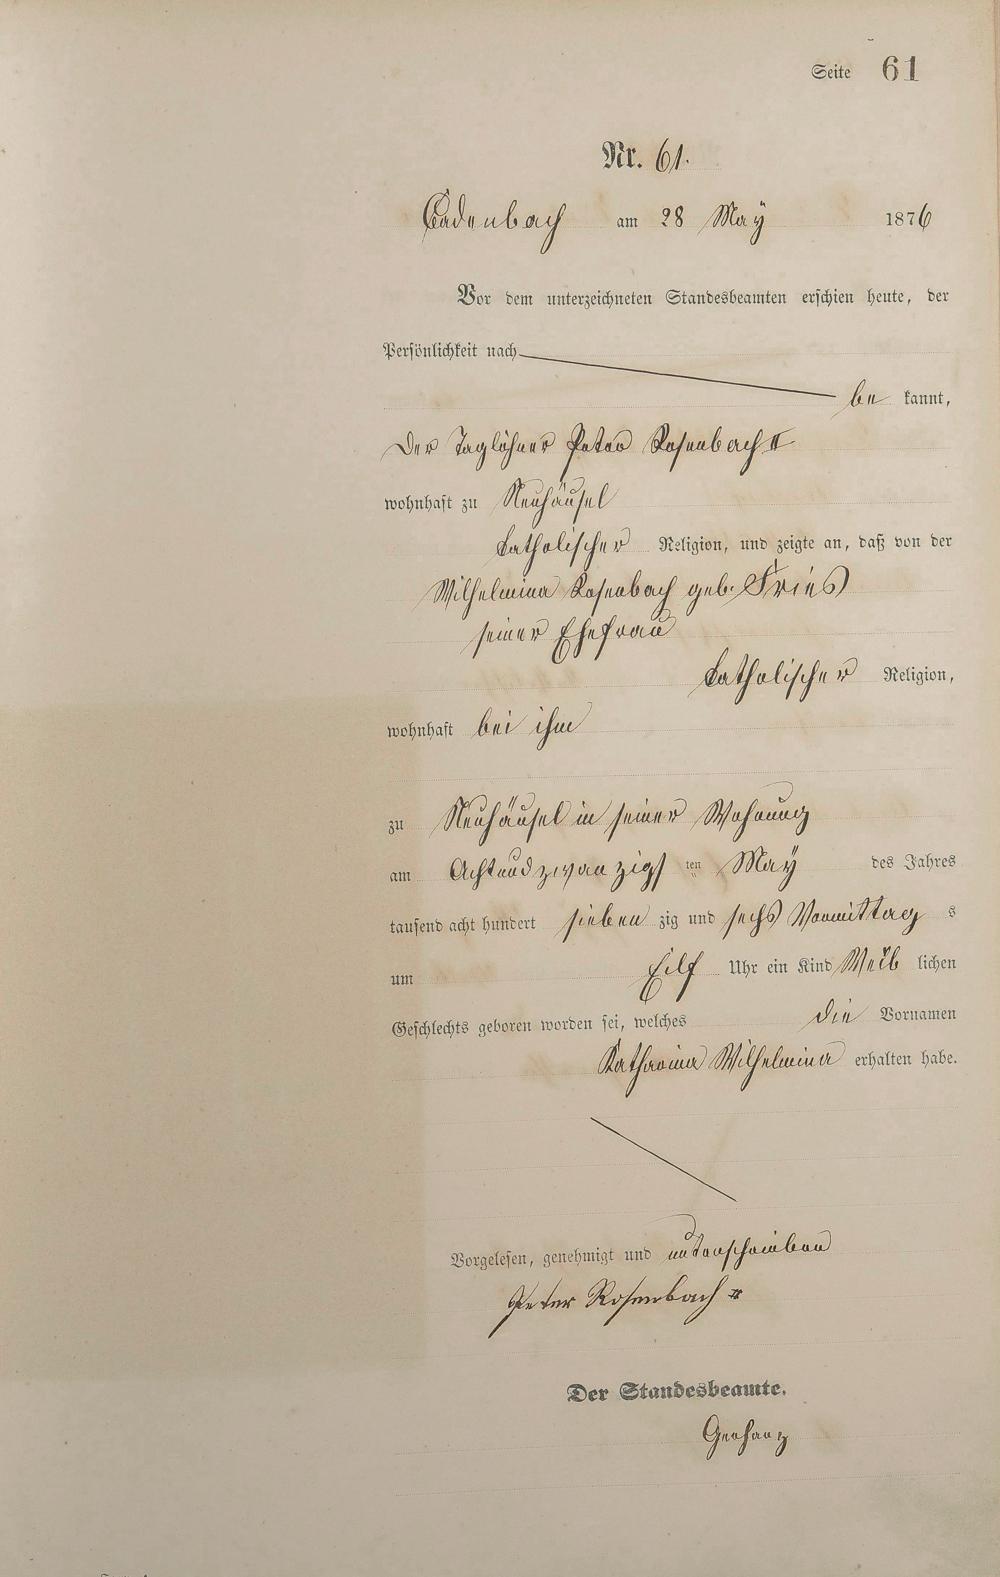 Seite 61
Nr. 61.
Cadenbach am 28 May 1876
Vor dem unterzeichneten Standesbeamten erschien heute, der
Persönlichkeit nach
be kannt,
der Taglöhner Peter Rosenbach II
wohnhaft zu Neuhäusel
katholischer Religion, und zeigte an, daß von der
Wilhelmina Rosenbach geb. Fries
seiner Ehefrau
katholischer Religion,
wohnhaft bei ihm
zu Neuhäusel in seiner Wohnung
am Achtundzwanzigs ten May des Jahres
tausend acht hundert sieben zig und sechs Vormittag s
um Eilf Uhr ein Kind Weib lichen
Geschlechts geboren worden sei, welches die Vornamen
Katharina Wilhelmina erhalten habe.
Vorgelesen, genehmigt und unterschrieben
Peter Rosenbach II
Der Standesbeamte.
Gerhanz